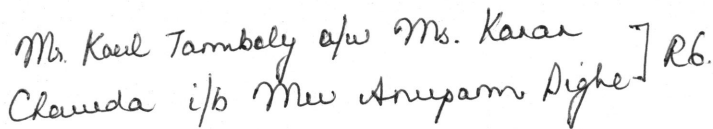 Mr. Kaeel Tamboly a/w Ms. Karan ] R6.
Chaweda i/b Mr Anupam Dighe